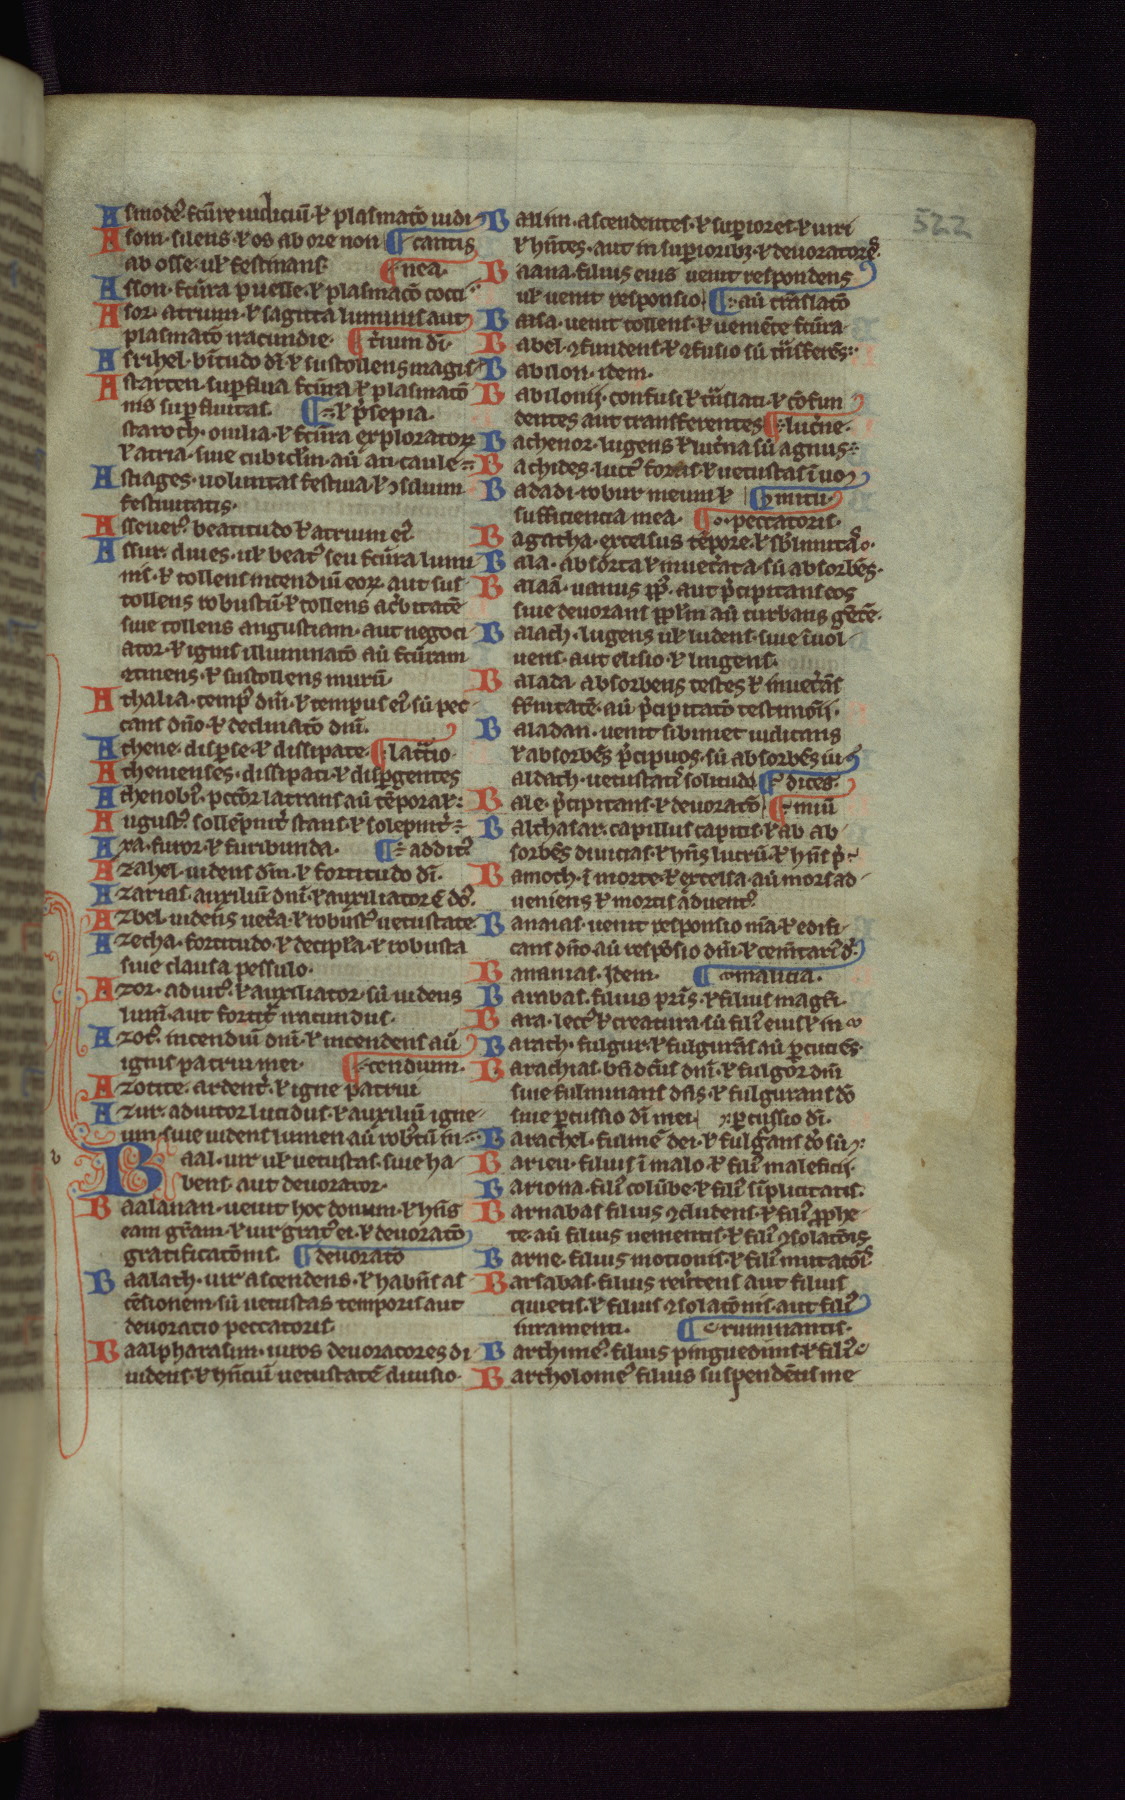 Asmode᷒ fcur̃e iudiciũ ⁊ plasmatõ iudi
Asom silens ⁊ os ab ore non ¶ cantis
ab osse ul̃ festinans ¶ nea
Asson fcũra puelle ⁊ plasmatõ cocci
Asor atrium ⁊ sagitta luminis aut
plasmatõ iracundie ¶ t̾ium dĩ
Asrihel bt̃itudo dĩ ⁊ sustollens magis
Astarten sup̲flua fcũra ⁊ plasmatõ
nis sup̲fluitas ¶ ⁊ p̾sepia
staroch ouilia ⁊ fcũra exploratoꝝ
⁊ atria siue cubicl̃m aũ ati caule
Astiages uoluntas festiua ⁊ ꝯsilium
festiuitatis
Asseuer᷒ beatitudo ⁊ atrium ei᷒
Assur diues ul̃ beat᷒ seu fcũra lumi
nis ⁊ tollens incendiũ eoꝝ aut sus
tollens robustũ ⁊ tollens ac̾bitatẽ
siue tollens angustiam aut negoci
ator ⁊ ignis illuminatõ aũ fcũram
ꝯtinens ⁊ sustollens murũ
Athalia temp᷒ dñi ⁊ tempus ei᷒ sũ pec
cans dño ⁊ declinatõ dñi
Athene disp̲se ⁊ dissipate ¶ lactĩo
Athenienses dissipati ⁊ disp̲gentes
Athenobi᷒ pcc̃or latrans aũ tẽporar̃
August᷒ sollẽpnit̾ stans ⁊ solẽpnit̾
Axa furor ⁊ furibunda ¶ addit᷒
Azahel uidens dñm ⁊ fortitudo dĩ
Azarias auxiliũ dñi ⁊ auxiliator ẽ d᷒
Azbel uidens uet̾a ⁊ robust᷒ uetustate
Azecha fortitudo ⁊ decipl̃a ⁊ robusta
siue clausa pessulo
Azor adiut᷒ ⁊ auxiliator sũ uidens
lumẽ aut fortit̾ iracundus
Azot᷒ incendiũ dñi ⁊ incendens aũ
ignis patrui mei ¶ cendium
Azotite ardent᷒ ⁊ igne patrui
Azur adiutor lucidus ⁊ auxiliũ igne
um siue uidens lumen aũ rob᷒tũ in
Baal uir ul̃ uetustas siue ha
bens aut deuorator
Baalanan uenit hoc donum ⁊ hñs
eam gr̃am ⁊ uir grat᷒ ei ⁊ deuoratõ
gratificatõnis ¶ deuoratõ
Baalath uir ascendens ⁊ habñs as
cẽsionem sũ uetustas temporis aut
deuoratio peccatoris
Baalpharasim uiros deuoratores di
uidens ⁊ hñciũ uetustatẽ diuisio
Ballim ascendentes ⁊ sup̲iores ⁊ uiri
⁊ hñtes aut in sup̲ioribꝫ ⁊ deuoratores
Baana filius eius uenit respondens
ul̃ uenit responsio ¶ aũ trãslatõ
Basa uenit tollens ⁊ ueniẽte fcũra
Babel ꝯfundens ⁊ ꝯfusio sũ trãsferẽs
Babilon idem
Babilonij confusi ⁊ trãslati ⁊ cõfun
dentes aut transferentes ¶ luc̾ne
Bachenor lugens ⁊ luc̾na sũ agnus
Bachides luct᷒ foras ⁊ uetustas ĩ uo
Badadi robur meum ⁊ ¶ mitũ
sufficiencia mea ¶ peccatoris
Bagatha excelsus tẽpore ⁊ sb̾limitas
Bala absorta ⁊ inuet̾ata sũ absorbẽs
Balaã uanus pp̃s aut p̾cipitans eos
siue deuorans ppl̃m aũ turbans gẽtẽ
Balach lugens ul̃ ludens siue ĩuol
uens aut elisio ⁊ lingens
Balada absorbens testes ⁊ inuet̾ãs
aũ p̾cipitatõ testimonĩj
Baladan uenit sibimet iudicans
⁊ absorbẽs p̾cipuos sũ absorbẽs iu
Baldach uetustatis solitudo ¶ dices
Bale p̾cipitans ⁊ deuoratõ ¶ miũ
Balthasar capillus capitis ⁊ ab ab
sorbẽs diuicias ⁊ hñs lucrũ ⁊ hñs p̾
Bamoth ĩ morte ⁊ excelsa aũ mors ad
ueniens ⁊ mortis aduent᷒
Banaias uenit responsio mĩa ⁊ edifi
cans dño aũ respõsio dñi ⁊ cem̃tari᷒
Bananias Idem ¶ malicia
Barabas filius pr̃is ⁊ filius magr̃i
Bara lect᷒ ⁊ creatura sũ fili᷒ eius ⁊ in
Barach fulgur ⁊ fulgurãs aũ p̲cuciẽs
Barachias bñdict᷒ dñi ⁊ fulgor dñi
siue fulminans dñs ⁊ fulgurans dõ
siue p̲cussio dĩ mei p̲cussio dĩ
Barachel fulmẽ dei ⁊ fulgũans dõ sũ
Barieu filius ĩ malo ⁊ fili᷒ maleficij
Bariona fili᷒ colũbe ⁊ fili᷒ sĩplicitatis
Barnabas filius ꝯcludens ⁊ fili᷒ pp̃he
te aũ filius uenientis ⁊ fili᷒ ꝯsolatõis
Barne filius motionis ⁊ fili᷒ mutatõis
Barsabas filius reũtens aut filius
quietis ⁊ filius ꝯsolatõnis aut fili᷒
iuramenti ¶ ruminantis
Barthime᷒ filius pinguedinis ⁊ fili᷒
Bartholome᷒ filius suspendẽtis me
522